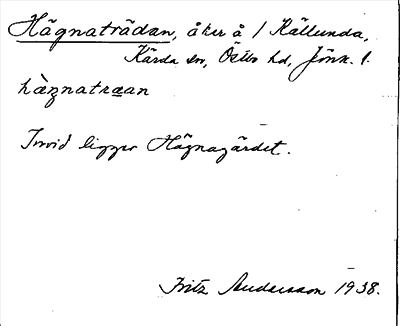 Hägnaträdan, åker å 1 Källunda,
Kärda sn, Östbo hd, Jönk. l.
hä̀gnatraan
Invid ligger Hägnagärdet.
Fritz Andersson 1938.